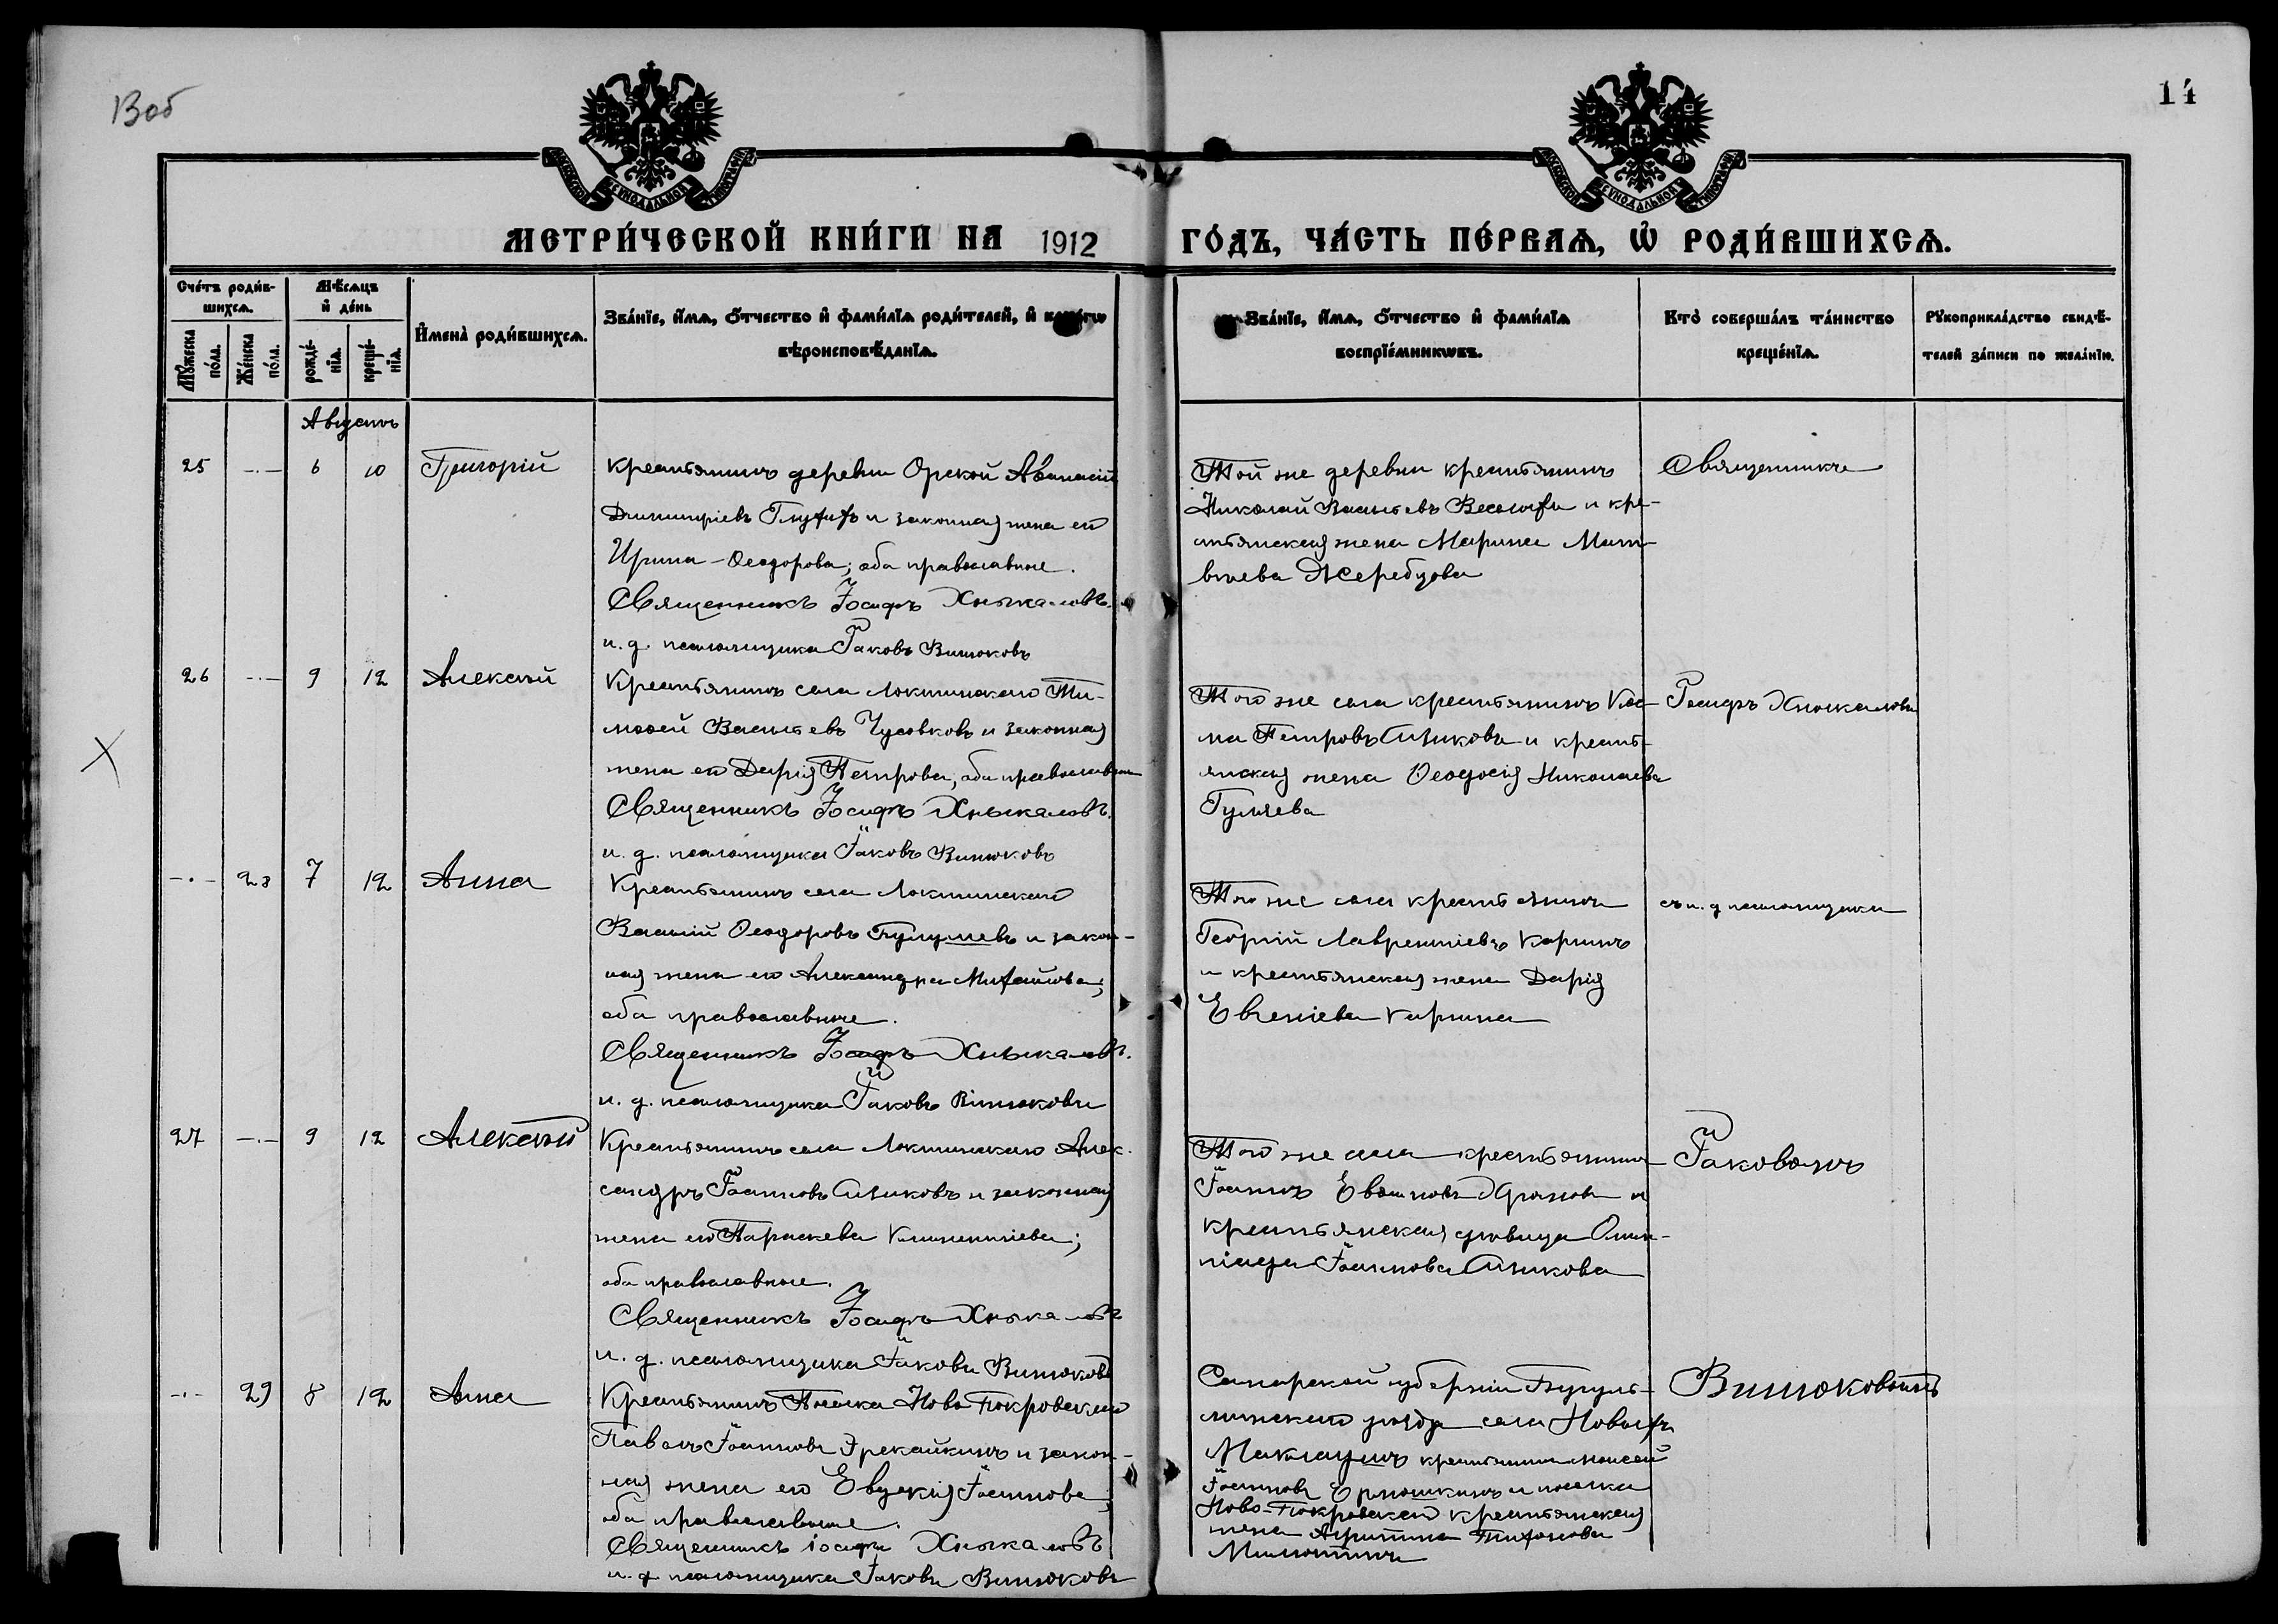 13об
14
МЕТРИ́ЧЕСКОЙ КНИ́ГИ НА 1912 ГО́ДЪ, ЧА́СТЬ ПЕ́РВАѦ, Ѡ҆ РОДИ́ВШИХСѦ.
Сче́тъ роди́в-
шихсѧ.
Мꙋ́жеска по́ла.
Же́нска по́ла.
Мѣ́сѧцъ
и҆ де́нь
рожде́-
нїѧ.
креще́-
нїѧ.
И҆мена̀ роди́вшихсѧ.
Зва́нїе, и҆́мѧ, ѻ҆́тчество и҆ фами́лїѧ роди́телей, и҆ како́гѡ
вѣроисповѣ́данїѧ.
Зва́нїе, и҆́мѧ, ѻ҆́тчество и҆ фами́лїѧ
воспрїе́мникѡвъ.
Кто̀ соверша́лъ та́инство
креще́нїѧ.
Рꙋкоприкла́дство свидѣ́-
телей за́писи по жела́нїю.
Августъ
25 -·- 6 10 Григорій
Крестьянинъ деревни Орской Аѳанасій
Димитріевъ Глухихъ и законная жена его
Ирина Ѳеодорова; оба православные.
Священникъ Іосифъ Хныкаловъ.
и. д. псаломщика Іаковъ Винюковъ
Той же деревни крестьянинъ
Николай Васильевъ и кре-
стьянская жена Марина Мат-
вѣева Жеребцова
Священникъ
26 -·- 9 12 Алексѣй
Крестьянинъ села Локтинскаго Ти-
моѳей Васильевъ Чусовковъ и законная
жена его Дарія Петрова, оба православные
Священникъ Іосифъ Хныкаловъ.
и. д. псаломщика Іаковъ Винюковъ
Того же села крестьянинъ Кос-
ма Петровъ Сизиковъ и кресть-
янская жена Ѳеодосія Николаева
Гуляева
Іосифъ Хныкаловъ
-·- 28 7 12 Анна
Крестьянинъ села Локтинскаго
Василій Ѳеодоровъ и закон-
ная жена его Александра Михайлова;
оба православные.
Священникъ Іосифъ Хныкаловъ.
и. д. псаломщика Іаковъ Винюковъ
Того же села крестьянинъ
Георгій Лаврентіевъ Каринъ
и крестьянская жена Дарія
Евгеніева Карина
съ и. д псаломщика
27 -·- 9 12 Алексѣй
Крестьянинъ села Локтинскаго Алек-
сандръ Іоанновъ Сизиковъ и законная
жена его Параскева Климентіева;
оба православные.
Священникъ Іосифъ Хныкаловъ
и. д. псаломщика Іаковъ Винюковъ
Того же села крестьянинъ
Іоаннъ и
крестьянская вдовица Олим-
піада Іоаннова Сизикова
Іаковомъ
-·- 29 8 12 Анна
Крестьянинъ Поселка Ново-Покровскаго
Павелъ Іоанновъ Эрекайкинъ и закон-
ная жена его Евдокія Іоаннова;
оба православные.
Священникъ Іосифъ Хныкаловъ
и. д. псаломщика Іаковъ Винюковъ
Самарской губерніи Бугуль-
минскаго уѣзда села Новыхъ
Маклаушъ крестьянинъ Моисей
Іоанновъ Ермошкинъ и поселка
Ново-Покровскаго крестьянская
жена Агриппина Тихонова
Винюковымъ